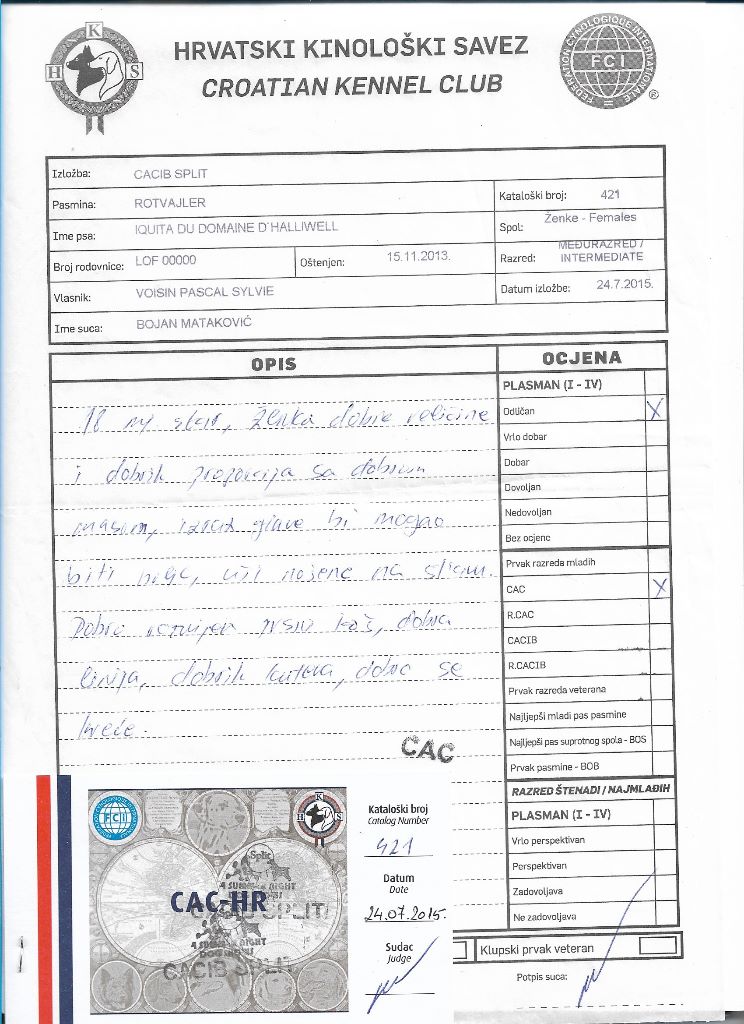 HRVATSKI KINOLOŠKI SAVEZ
CROATIAN KENNEL CLUB
H K S
FEDERATION CYNOLOGIQUE INTERNATIONALE
FCI
®
Izložba: CACIB SPLIT
Pasmina: ROTVAJLER
Kataloški broj: 421
Ime psa: IQUITA DU DOMAINE D'HALLIWELL
Spol: Ženke - Females
Broj rodovnice: LOF 00000
Oštenjen: 15.11.2013.
Razred: MEĐURAZRED / INTERMEDIATE
Vlasnik: VOISIN PASCAL SYLVIE
Datum izložbe: 24.7.2015.
Ime suca: BOJAN MATAKOVIĆ
OPIS
18 mj stara, ženka dobre veličine
i dobrih proporcija sa dobrom
masom, izraz glave bi mogao
biti bolji, uši nošene na stranu.
Dobro razvijen prsni koš, dobra
linija, dobrih kuteva, dobro se
kreće.
CAC
OCJENA
PLASMAN (I - IV)
Odličan X
Vrlo dobar
Dobar
Dovoljan
Nedovoljan
Bez ocjene
Prvak razreda mladih
CAC X
R.CAC
CACIB
R.CACIB
Prvak razreda veterana
Najljepši mladi pas pasmine
Najljepši pas suprotnog spola - BOS
Prvak pasmine - BOB
RAZRED ŠTENADI / NAJMLAĐIH
PLASMAN (I - IV)
Vrlo perspektivan
Perspektivan
Zadovoljava
Ne zadovoljava
Klupski prvak veteran
Potpis suca:
FCI
H K S
Split
4 SUMMER NIGHT
DOG SHOWS
CAC-HR
CACIB SPLIT
4 SUMMER NIGHT
DOG SHOWS
CACIB SPLIT
Kataloški broj
Catalog Number
421
Datum
Date
24.07.2015.
Sudac
Judge